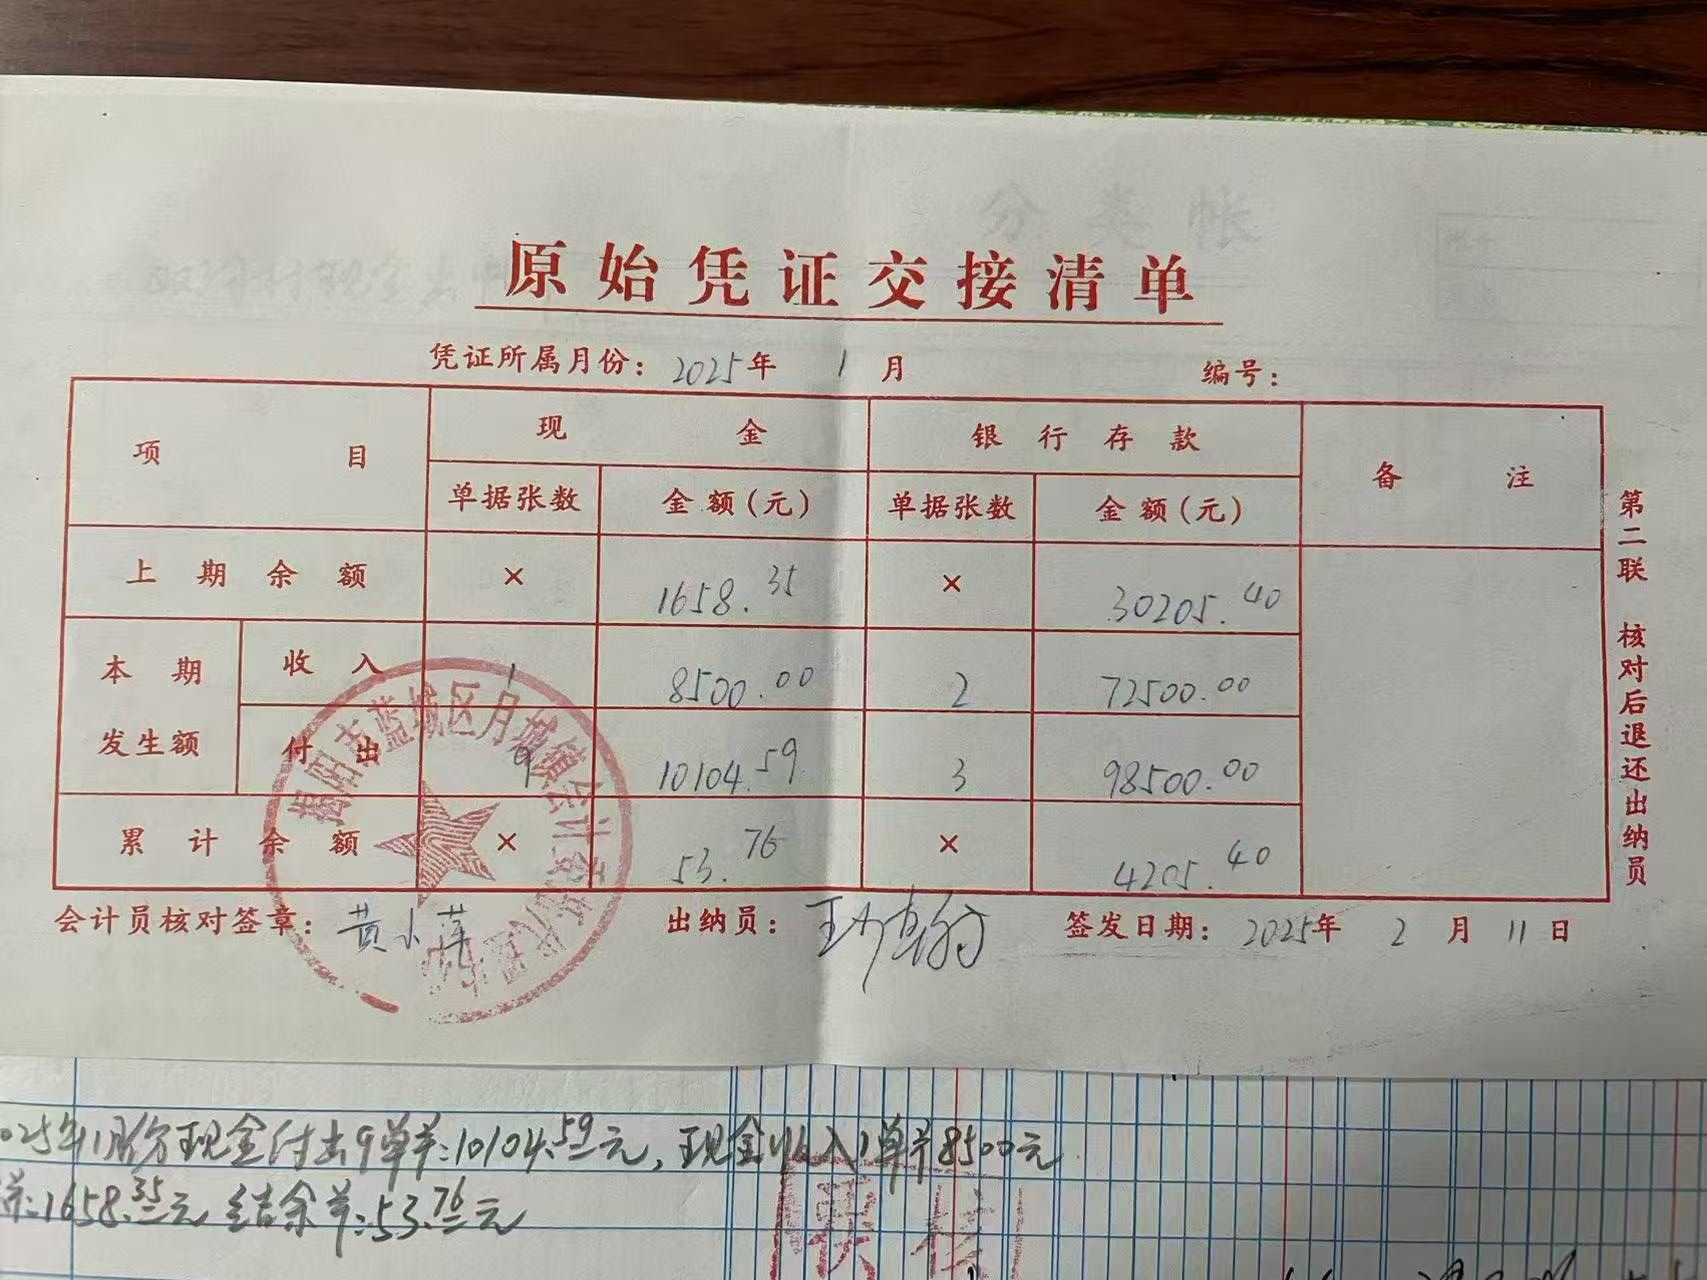 分类帐
原始凭证交接清单
凭证所属月份：2025年 1月 编号：
项目 现金 银行存款 备注
单据张数 金额(元) 单据张数 金额(元)
上期余额 × 1658.35 × 30205.40
本期发生额 收入 1 8500.00 2 72500.00
付出 9 10104.59 3 98500.00
累计余额 × 53.76 × 4205.40
会计员核对签章：黄小萍 出纳员： 签发日期：2025年 2月 11日
第二联 核对后退还出纳员
揭阳市蓝城区月城镇会计
025年1月份现金付出9单共:10104.59元,现金收入1单共8500元
1658.35元 结余共:53.76元